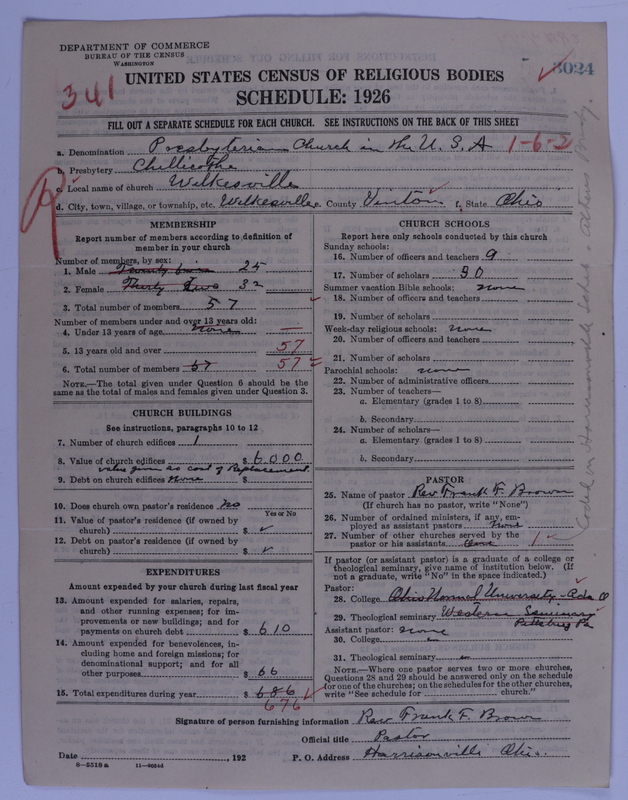 DEPARTMENT OF COMMERCE
BUREAU OF THE CENSUS
WASHINGTON
3024
UNITED STATES CENSUS OF RELIGIOUS BODIES
341
SCHEDULE: 1926
FILL OUT A SEPARATE SCHEDULE FOR EACH CHURCH. SEE INSTRUCTIONS ON THE BACK OF THIS SHEET
a. Denomination Presbyterian Church in the U. S. A 1-6-2
b. Presbytery Chillicothe
c. Local name of church Wilkesville
d. City, town, village, or township, etc. Wilkesville e. County Vinton f. State Ohio
R
MEMBERSHIP
Report number of members according to definition of
member in your church
Number of members, by sex:
1. Male Twenty five 25
2. Female Thirty Two 32
3. Total number of members 57
Number of members under and over 13 years old:
4. Under 13 years of age none —
5. 13 years old and over 57
6. Total number of members 57 57
NOTE.—The total given under Question 6 should be the
same as the total of males and females given under Question 3.
CHURCH BUILDINGS
See instructions, paragraphs 10 to 12
7. Number of church edifices 1
8. Value of church edifices $ 6000
value given as cost of Replacement
9. Debt on church edifices none $
10. Does church own pastor's residence no
Yes or No
11. Value of pastor's residence (if owned by
church) $ ✓
12. Debt on pastor's residence (if owned by
church) $ ✓
EXPENDITURES
Amount expended by your church during last fiscal year
13. Amount expended for salaries, repairs,
and other running expenses; for im-
provements or new buildings; and for
payments on church debt $ 610
14. Amount expended for benevolences, in-
cluding home and foreign missions; for
denominational support; and for all
other purposes $ 66
15. Total expenditures during year $ 686
676
CHURCH SCHOOLS
Report here only schools conducted by this church
Sunday schools:
16. Number of officers and teachers 9
17. Number of scholars 90
Summer vacation Bible schools: none
18. Number of officers and teachers
19. Number of scholars
Week-day religious schools: none
20. Number of officers and teachers
21. Number of scholars
Parochial schools: none
22. Number of administrative officers
23. Number of teachers—
a. Elementary (grades 1 to 8)
b. Secondary
24. Number of scholars—
a. Elementary (grades 1 to 8)
b. Secondary
PASTOR
25. Name of pastor Rev. Frank F. Brown
(If church has no pastor, write "None")
26. Number of ordained ministers, if any, em-
ployed as assistant pastors none
27. Number of other churches served by the
pastor or his assistants One 1
If pastor (or assistant pastor) is a graduate of a college or
theological seminary, give name of institution below. (If
not a graduate, write "No" in the space indicated.)
Pastor:
28. College Ohio Normal University - Ada O
29. Theological seminary Western Seminary
Pittsburg Pa
Assistant pastor: none
30. College
31. Theological seminary
NOTE.—Where one pastor serves two or more churches,
Questions 28 and 29 should be answered only on the schedule
for one of the churches; on the schedules for the other churches,
write "See schedule for church."
Signature of person furnishing information Rev. Frank F. Brown
Official title Pastor
Date , 192 P. O. Address Harrisonville Ohio.
8—5518 a